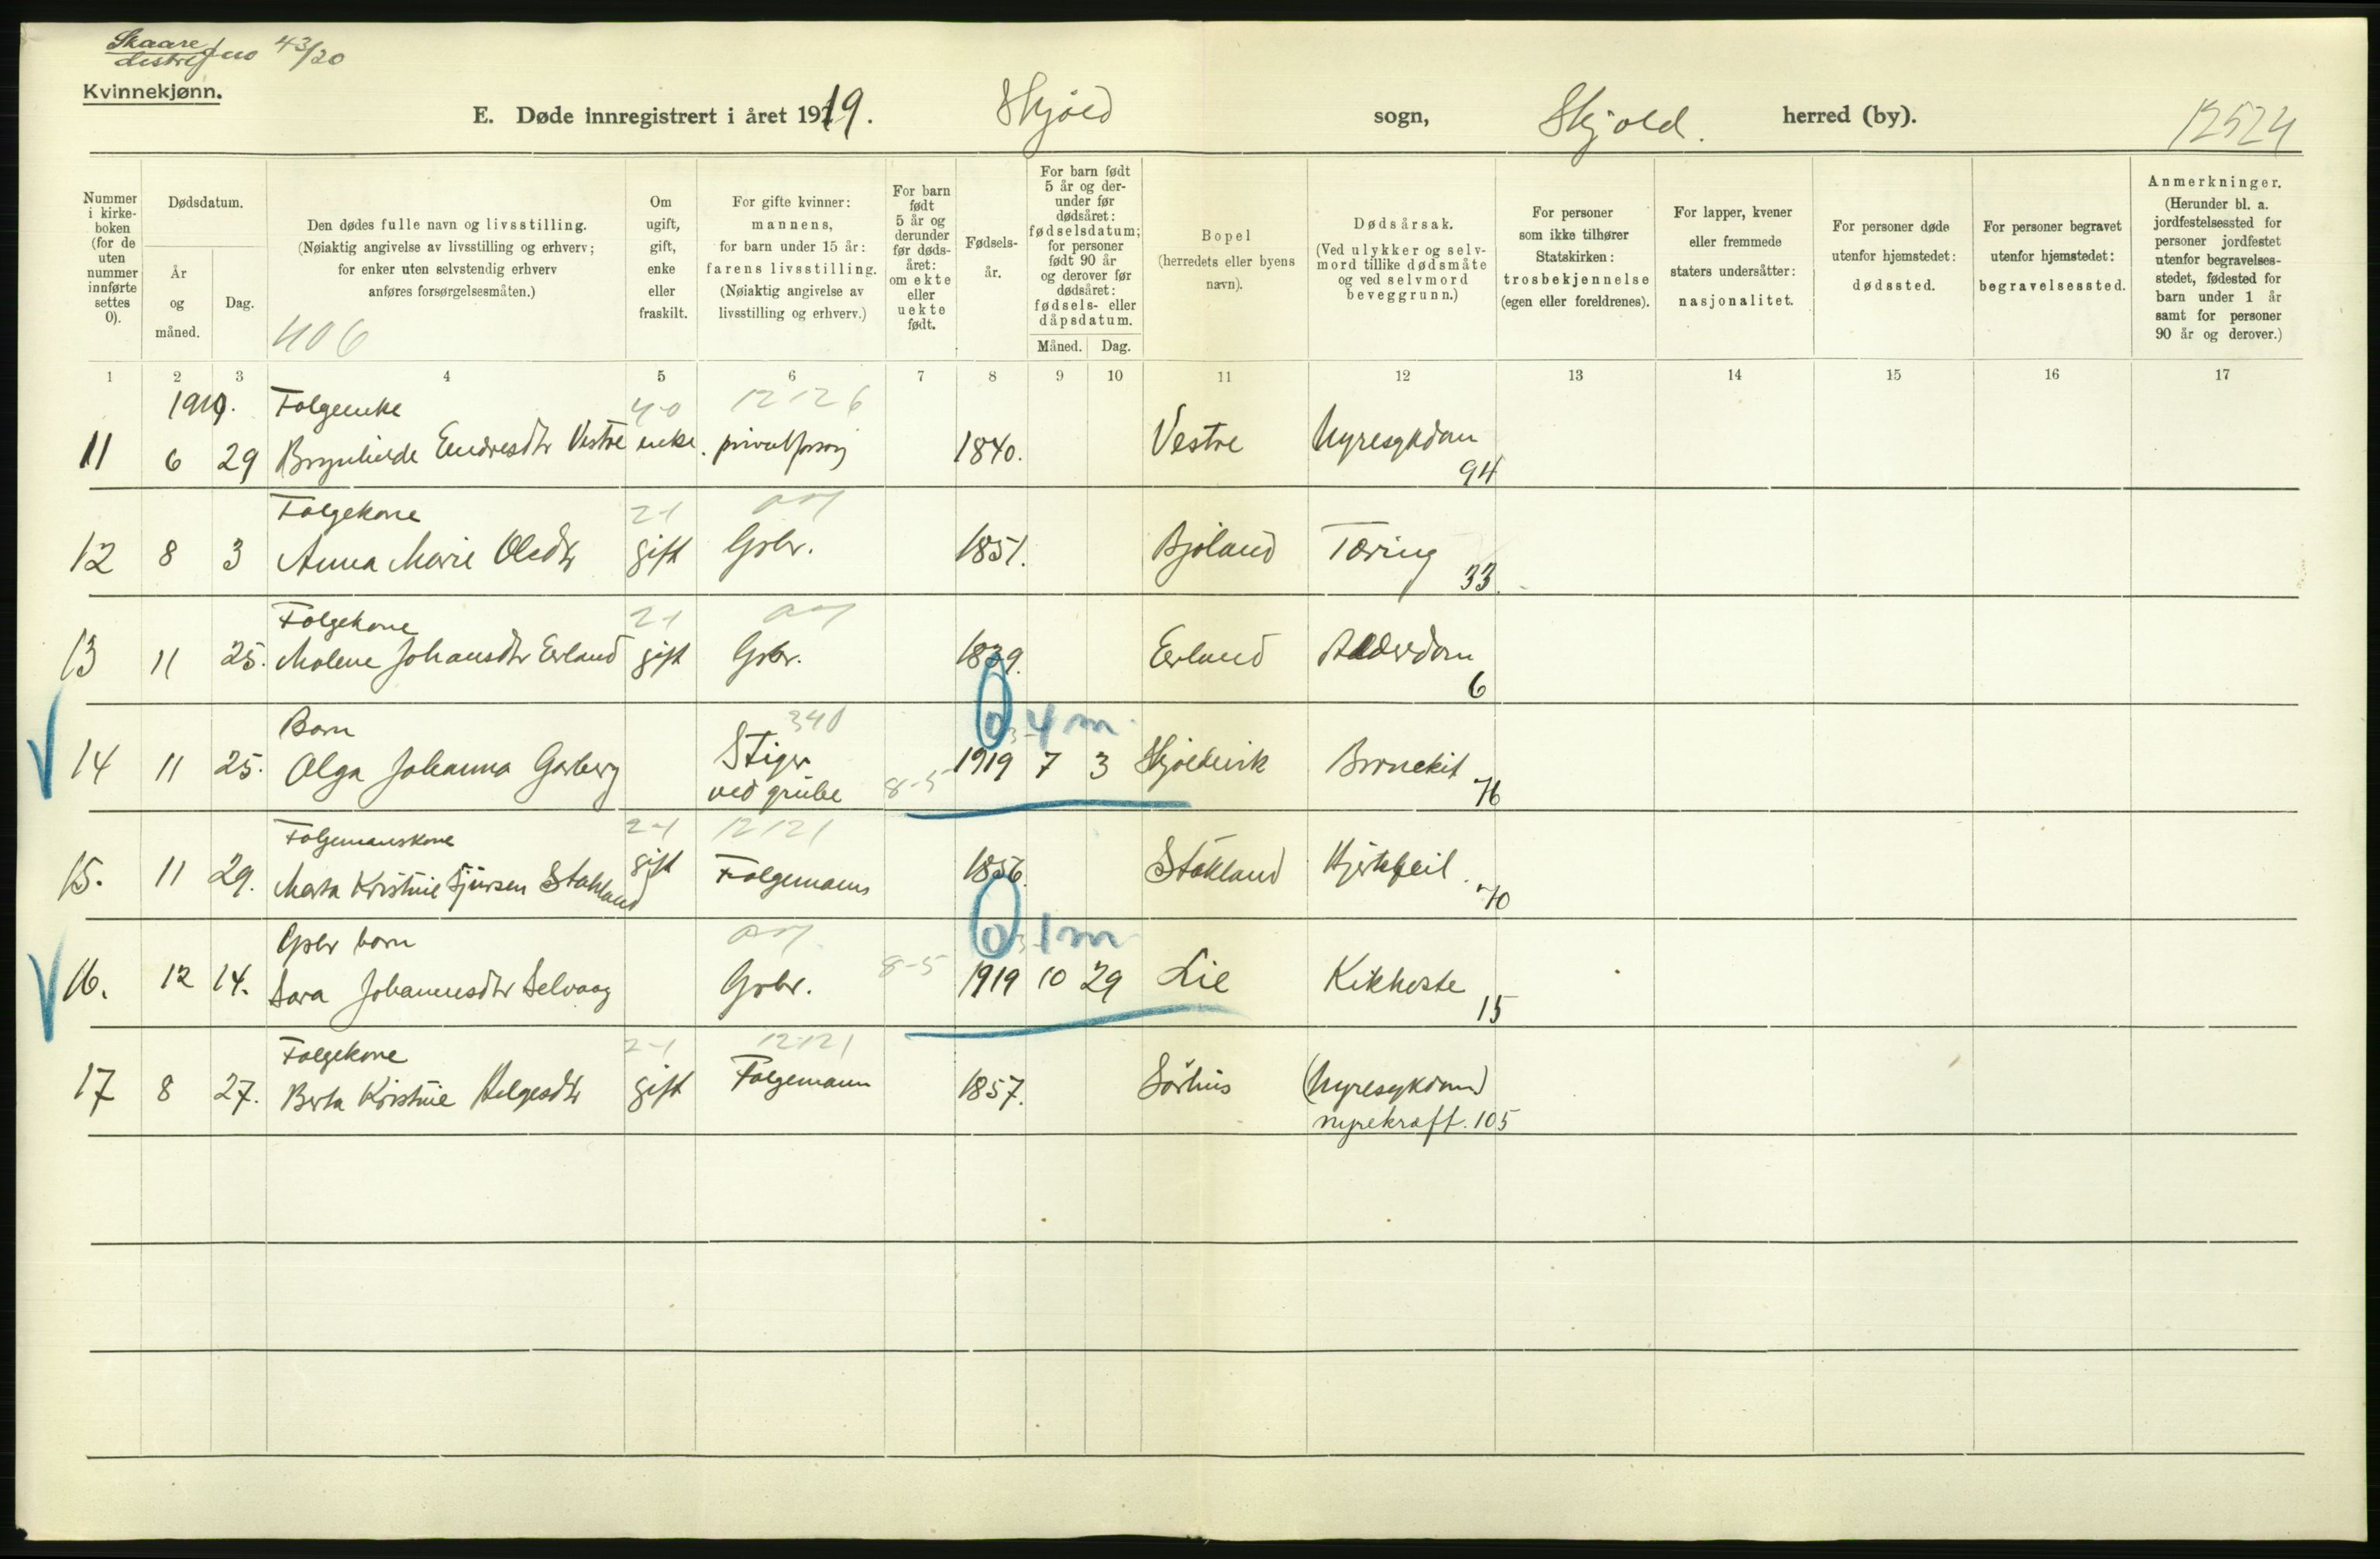 Skaare
distre
43/20
Kvinnekjønn.
E. Døde innregistrert i året 1919. Skjold sogn, Skjold. herred (by). 12524
Nummer i kirkeboken (for de uten nummer innførte settes 0).
Dødsdatum.
År og måned.
Dag.
Den dødes fulle navn og livsstilling.
(Nøiaktig angivelse av livsstilling og erhverv;
for enker uten selvstendig erhverv
anføres forsørgelsesmåten.)
406
Om ugift, gift, enke eller fraskilt.
For gifte kvinner: mannens,
for barn under 15 år:
farens livsstilling.
(Nøiaktig angivelse av
livsstilling og erhverv.)
For barn født 5 år og derunder før dødsåret: om ekte eller uekte født.
Fødselsår.
For barn født 5 år og derunder før dødsåret: fødselsdatum; for personer født 90 år og derover før dødsåret: fødsels- eller dåpsdatum.
Måned. Dag.
Bopel
(herredets eller byens navn).
Dødsårsak.
(Ved ulykker og selvmord tillike dødsmåte og ved selvmord beveggrunn.)
For personer som ikke tilhører Statskirken: trosbekjennelse (egen eller foreldrenes).
For lapper, kvener eller fremmede staters undersåtter: nasjonalitet.
For personer døde utenfor hjemstedet: dødssted.
For personer begravet utenfor hjemstedet: begravelsessted.
Anmerkninger.
(Herunder bl. a. jordfestelsessted for personer jordfestet utenfor begravelsesstedet, fødested for barn under 1 år samt for personer 90 år og derover.)
1 2 3 4 5 6 7 8 9 10 11 12 13 14 15 16 17
1919. Folgeenke 4-0 12126
11 6 29 Brynhilde Endresdtr Vestre enke. privat forsörg 1840. Vestre Nyresykdom
94
Folgekone 2-1
12 8 3 Anna Marie Olsdtr gift Gbr. 1851. Bjoland Tæring
33.
Folgekone 2-1
13 11 25. Malene Johansdtr Erland gift Gbr. 1839. Erland Alderdom
6
Barn 340 0 4 m
14 11 25. Olga Johanna Garberg Stiger 1919 7 3 Skjoldevik
ved grube 8-5 76
Folgemanskone 2-1 12121
15. 11 29. Marta Kristine Sjursen Stakland gift Folgemann 1856. Stakland Hjertefeil.
70
Gbr barn 0 1 m
16. 12 14. Sara Johannesdtr Selvaag Gbr. 8-5 1919 10 29 Lie Kikhoste
15
Folgekone 2-1 12121
17 8 27. Berta Kristine Helgesdtr gift Folgemann 1857. Sörhus (Nyresykdom)
nyrekræft. 105